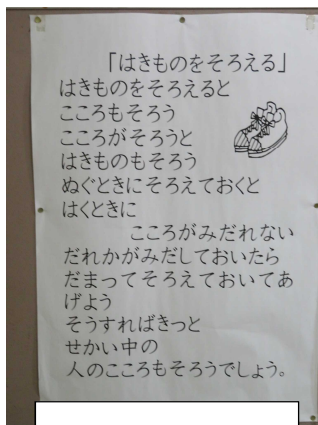 「はきものをそろえる」
はきものをそろえると
こころもそろう
こころがそろうと
はきものもそろう
ぬぐときにそろえておくと
はくときに
こころがみだれない
だれかがみだしておいたら
だまってそろえておいてあ
げよう
そうすればきっと
せかい中の
人のこころもそろうでしょう。